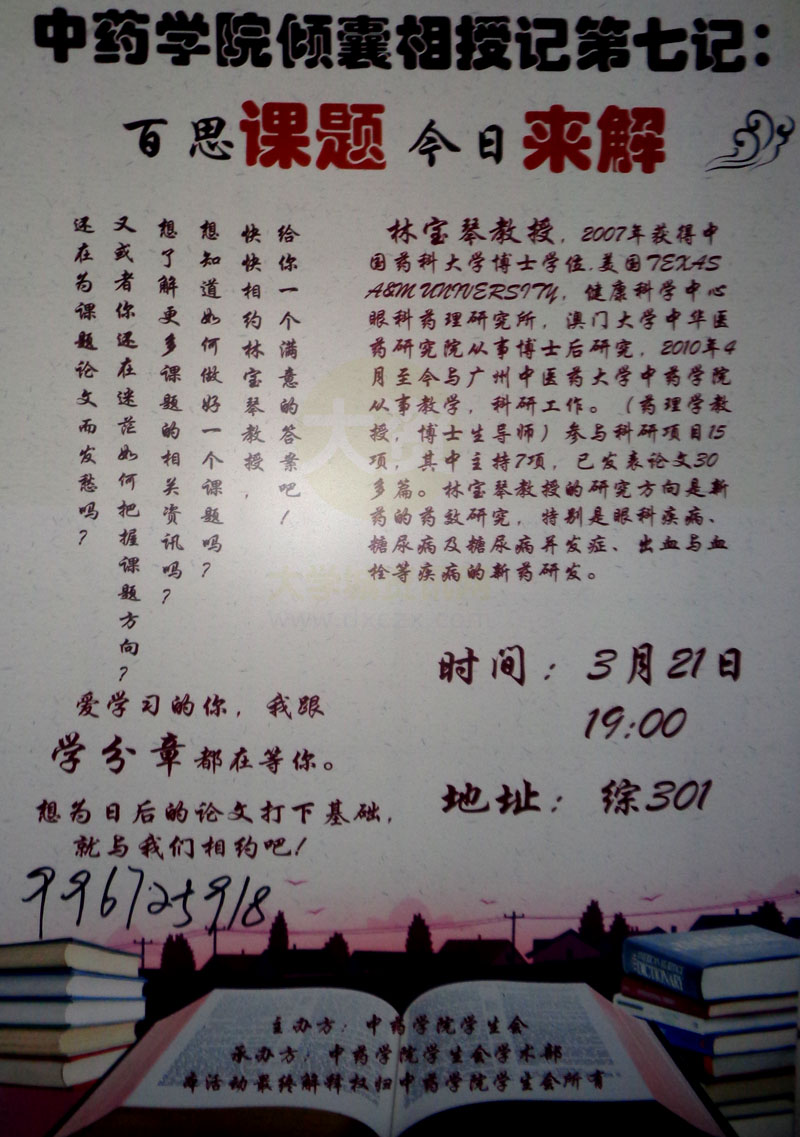 中药学院倾囊相授记第七记：
百思课题 今日来解
还在为课题论文而发愁吗？
又或者你还在迷茫如何把握课题方向？
想了解更多课题的相关资讯吗？
想知道如何做好一个课题吗？
快快相约林宝琴教授，
给你一个满意的答案吧！
林宝琴教授，2007年获得中
国药科大学博士学位，美国TEXAS
A&M UNIVERSITY，健康科学中心
眼科药理研究所，澳门大学中华医
药研究院从事博士后研究，2010年4
月至今与广州中医药大学中药学院
从事教学，科研工作。（药理学教
授，博士生导师）参与科研项目15
项，其中主持7项，已发表论文30
多篇。林宝琴教授的研究方向是新
药的药效研究，特别是眼科疾病、
糖尿病及糖尿病并发症、出血与血
栓等疾病的新药研发。
时间：3月21日
19:00
地址：综301
爱学习的你，我跟
学分章都在等你。
想为日后的论文打下基础，
就与我们相约吧！
996725918
DICTIONARY
主办方：中药学院学生会
承办方：中药学院学生会学术部
本活动最终解释权归中药学院学生会所有